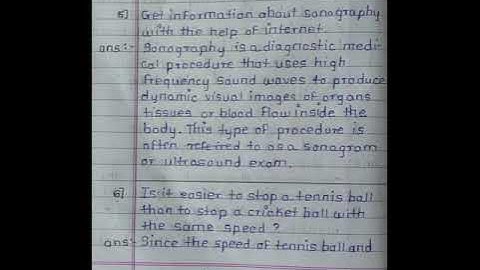 5] Get information about sonography
with the help of internet.
ans:- Sonography is a diagnostic medi-
cal procedure that uses high
frequency sound waves to produce
dynamic visual images of organs
tissues or blood flow inside the
body. This type of procedure is
often refeired to as a sonogram
or ultrasound exam.
6] Is it easier to stop a tennis ball
than to stop a cricket ball with
the same speed ?
ans:- Since the speed of tennis ball and